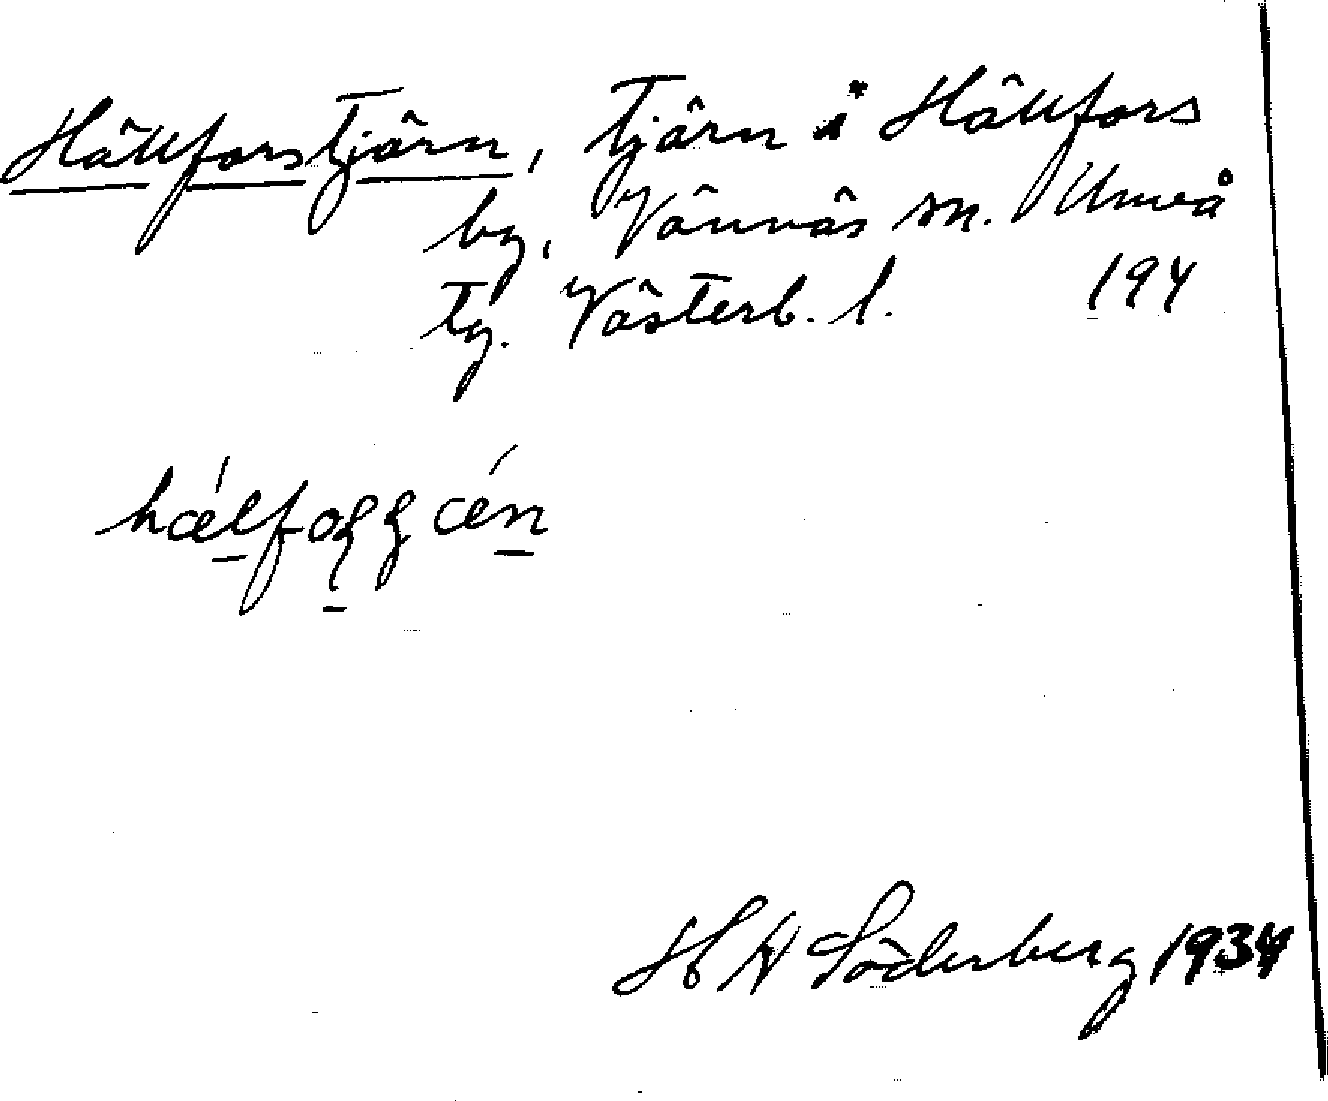 Hällforstjärn, tjärn i Hällfors
by, Vännäs sn. Umeå
tg. Västerb. l. 194
H W Söderberg 1934